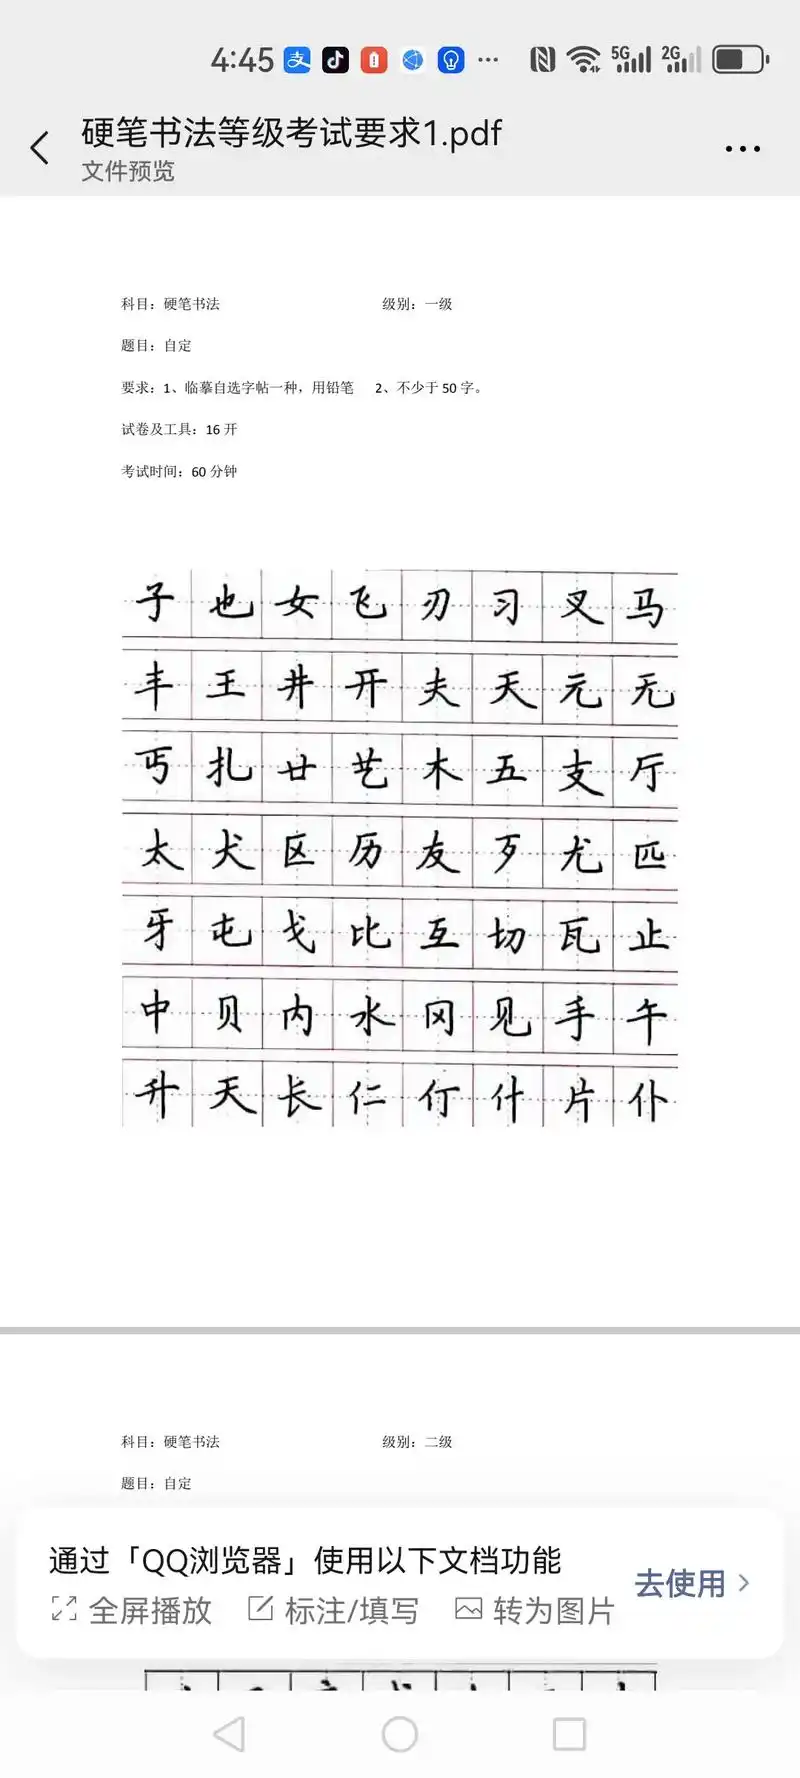 4:45 支 5G 2G
硬笔书法等级考试要求1.pdf
文件预览
科目：硬笔书法 级别：一级
题目：自定
要求：1、临摹自选字帖一种，用铅笔 2、不少于 50 字。
试卷及工具：16 开
考试时间：60 分钟
子也女飞刃习叉马
丰王井开夫天元无
丐扎廿艺木五支厅
太犬区历友歹尤匹
牙屯戈比互切瓦止
中贝内水冈见手午
升夭长仁仃什片仆
科目：硬笔书法 级别：二级
题目：自定
通过「QQ浏览器」使用以下文档功能
去使用
全屏播放 标注/填写 转为图片